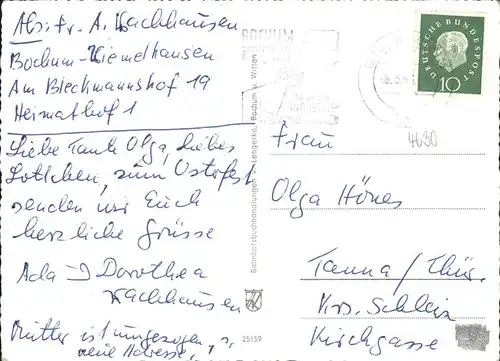 Abs. Fr. A. Wachhausen
Bochum-Wiemelhausen
Am Bleckmannshof 19
Heimathof 1
Liebe Tante Olga, liebes
Lottchen, zum Osterfest
senden wir Euch
herzliche Grüsse
Ada Dorothea
Wachhausen
Mutter ist umgezogen, s.
neue Adresse.
Bahnhofsbuchhandlungen Lengerke, Bochum u. Witten
25159
BOCHUM
DEUTSCHE BUNDESPOST
10
4630
Frau
Olga Hönes
Tanna / Thür.
Krs. Schleiz
Kirchgasse